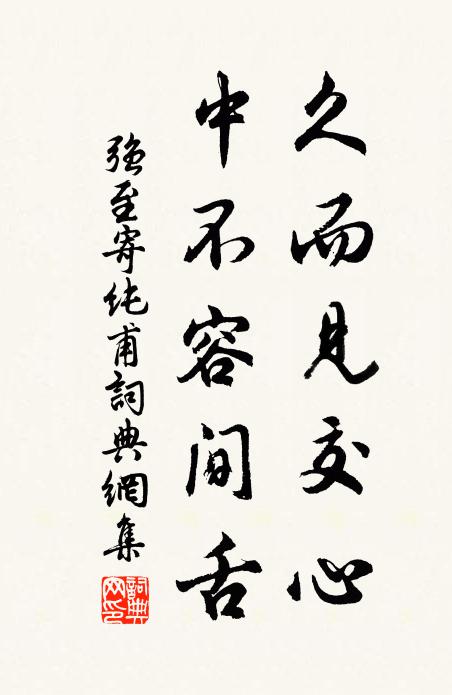 久而见交心
中不容间舌
强至寄纯甫詞典網集
詞典
网印